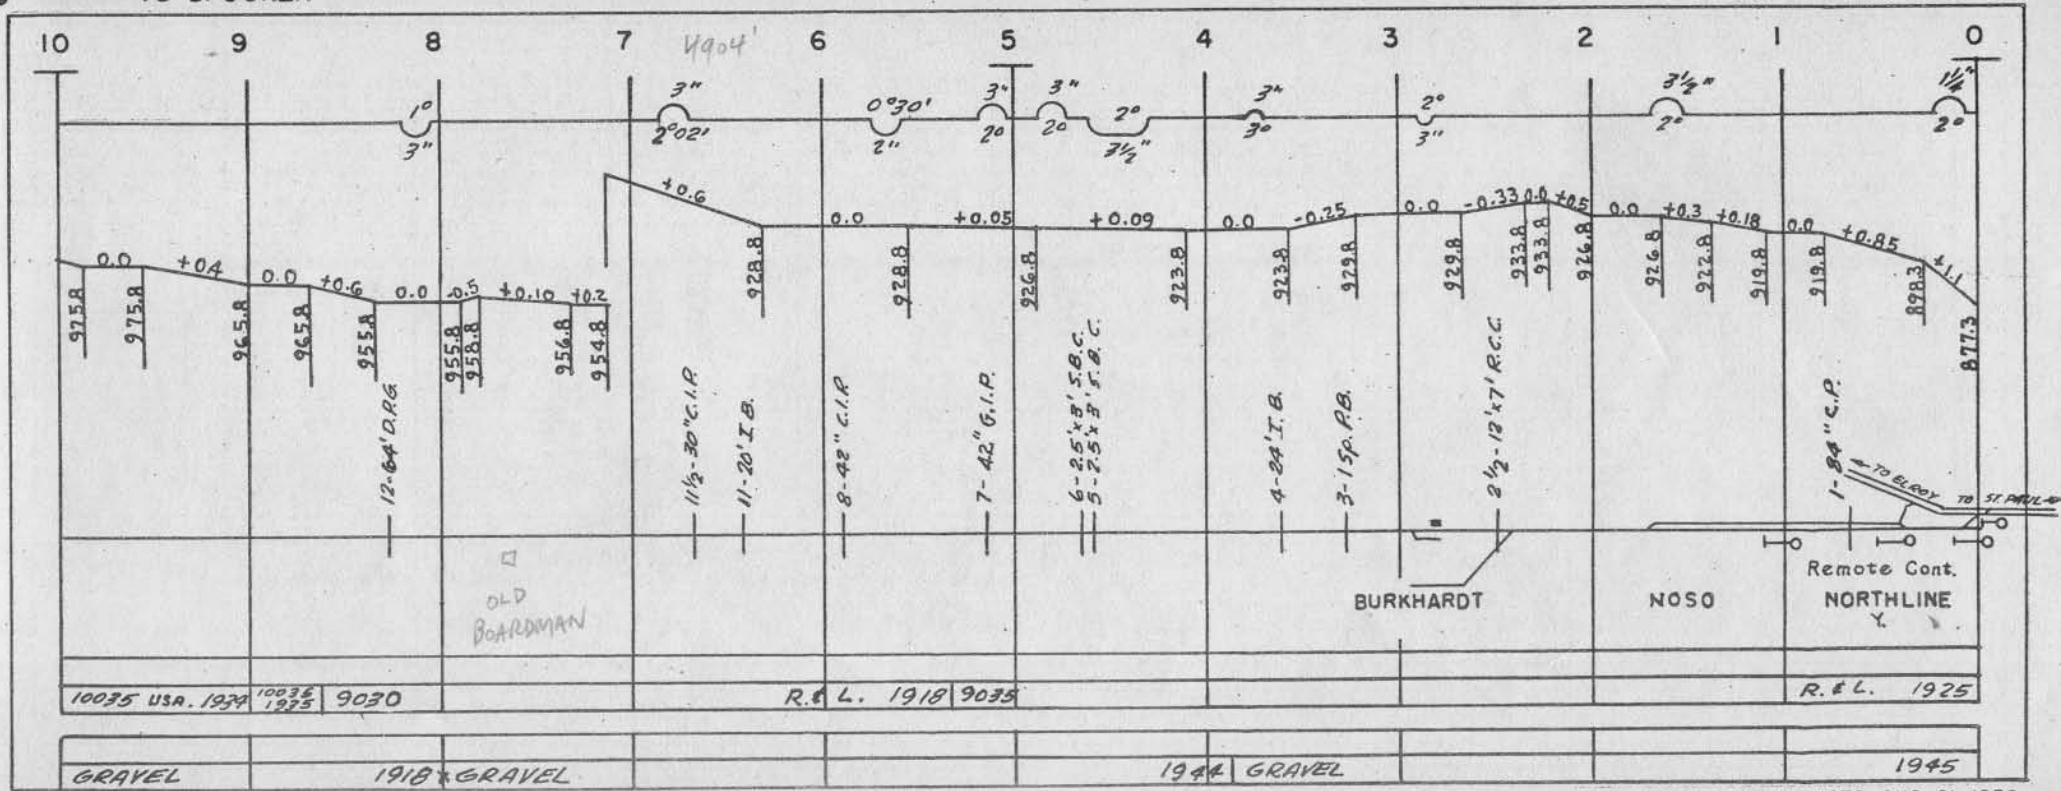 10 9 8 7 6 5 4 3 2 1 0
4904'
1° 3" 0°30' 3" 3" 2° 3" 2° 3½" 1¼"
3" 2°02' 2" 2° 2° 3½" 3° 3" 2° 2°
+0.6 0.0 +0.05 +0.09 0.0 -0.25 0.0 -0.33 0.0 +0.5 0.0 +0.3 +0.18 0.0 +0.85 +1.1
0.0 +0.4 0.0 +0.6 0.0 -0.5 +0.10 +0.2
975.8 975.8 965.8 965.8 955.8 955.8 958.8 956.8 954.8 928.8 928.8 926.8 923.8 923.8 929.8 929.8 933.8 933.8 926.8 926.8 922.8 919.8 919.8 898.3 877.3
12-64' D.P.G.
11½-30" C.I.P.
11-20' I.B.
8-42" C.I.P.
7-42" G.I.P.
6-2.5'x3' S.B.C.
5-2.5'x3' S.B.C.
4-24' I.B.
3-1 Sp. P.B.
2½-12'x7' R.C.C.
1-84" C.P.
TO ELROY
TO ST. PAUL
Remote Cont.
BURKHARDT NOSO NORTHLINE
Y.
OLD
BOARDMAN
10035 USA. 1934 10035 1925 9030 R. & L. 1918 9035 R. & L. 1925
GRAVEL 1918 GRAVEL 1944 GRAVEL 1945